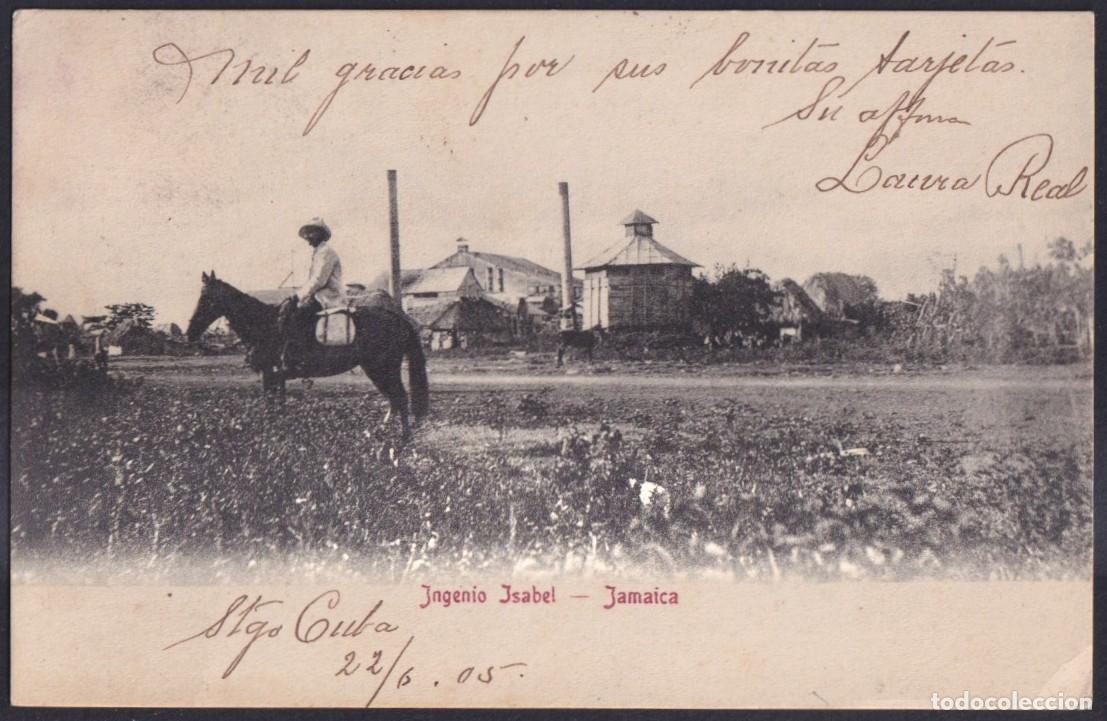 Mil gracias por sus bonitas tarjetas.
Su affma
Laura Real
Ingenio Isabel — Jamaica
Stgo Cuba
22/6.05-
todocoleccion.net